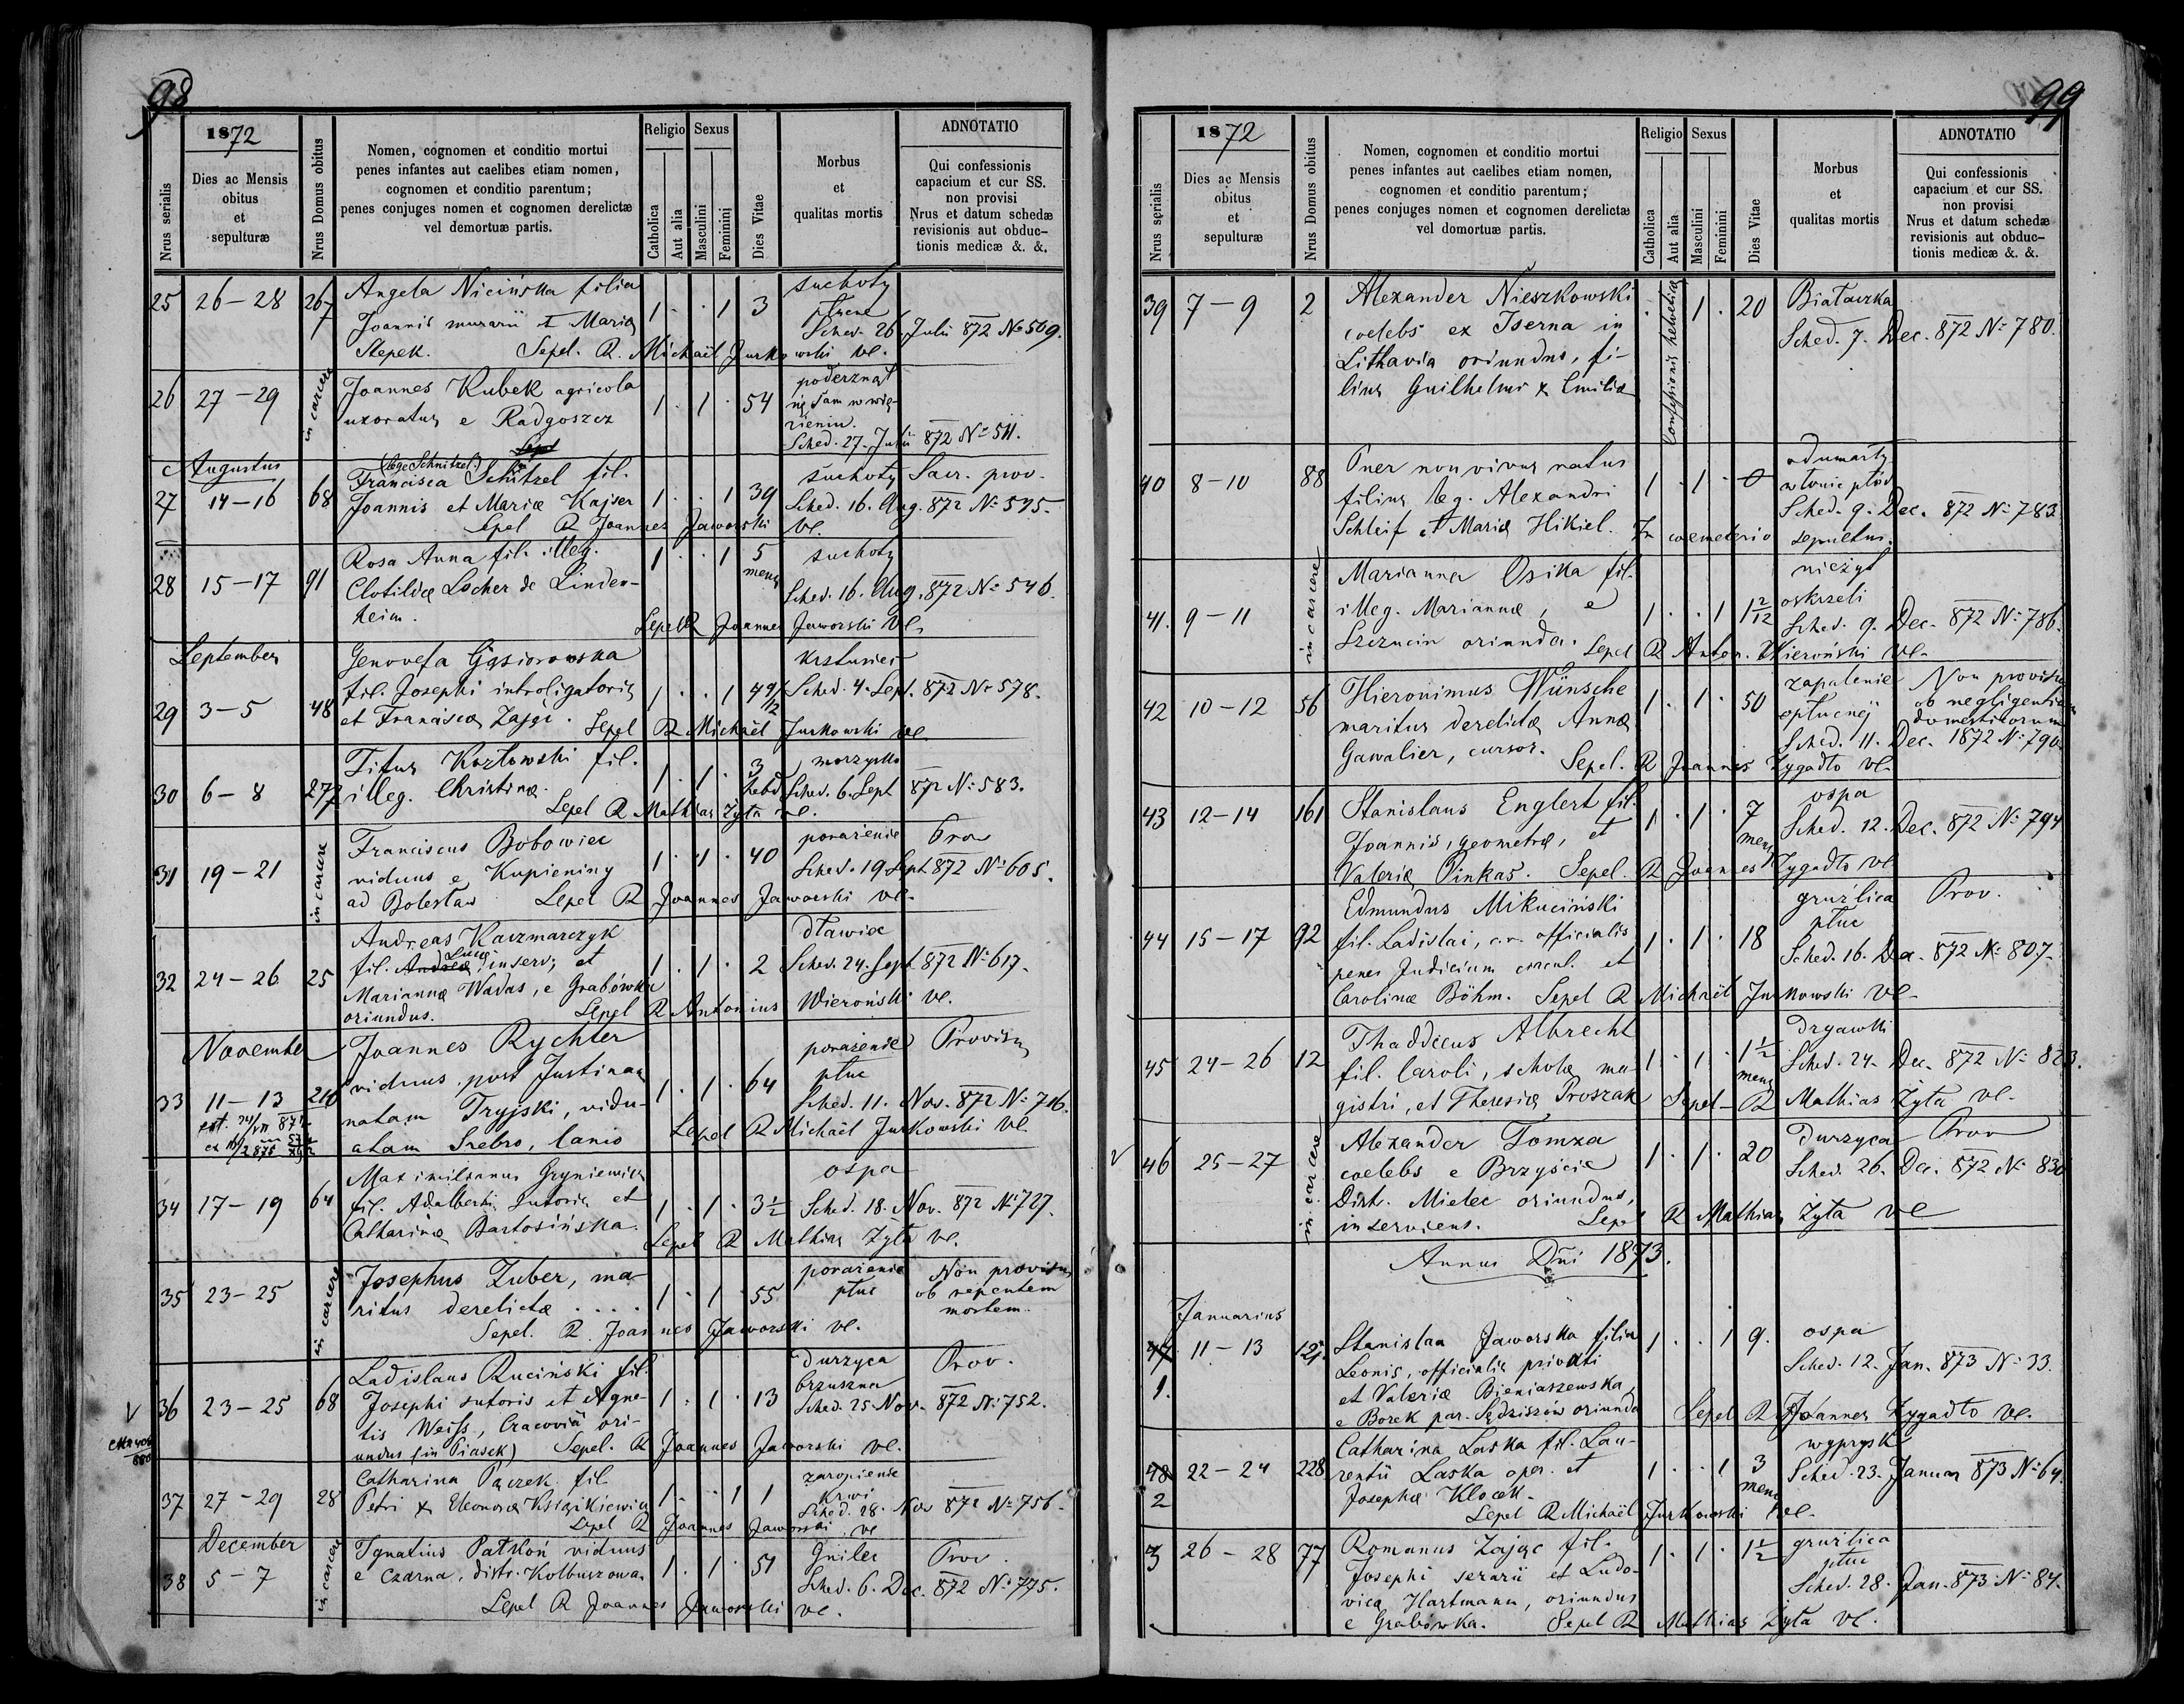 98
1872
Nrus serialis
Dies ac Mensis obitus et sepulturæ
Nrus Domus obitus
Nomen, cognomen et conditio mortui
penes infantes aut caelibes etiam nomen,
cognomen et conditio parentum;
penes conjuges nomen et cognomen derelictæ
vel demortuæ partis.
Religio
Catholica
Aut alia
Sexus
Masculini
Feminini
Dies Vitae
Morbus
et
qualitas mortis
ADNOTATIO
Qui confessionis
capacium et cur SS.
non provisi
Nrus et datum schedæ
revisionis aut obduc-
tionis medicæ &. &.
25 26-28 267 Angela Nicińska filia 1 . . 1 3 suchoty
Joannis murarii et Mariæ płucne
Stepek. Sched. 26. Julii 872 No 509.
Sepel. R. Michaël Jurkowski vc.
26 27-29 in carcere Joannes Kubek agricola 1 . 1 . 54 poderznął
uxoratus e Radgoszcz się sam w wię-
zieniu.
Sched. 27. Julii 872 No 511.
Augustus
(lege Schnitzel)
27 14-16 68 Francisca Schitzel fil. 1 . . 1 39 suchoty Sacr. prov.
Joannis et Mariæ Kajser Sched. 16. Aug. 872 No 545.
Sepel R Joannes Jaworski vc.
28 15-17 91 Rosa Anna fil. illeg. 1 . . 1 5 mens suchoty
Clotildæ Locher de Linden- Sched. 16. Aug. 872 No 546.
heim. Sepel R Joannes Jaworski vc.
September
29 3-5 48 Genovefa Gąsiorowska 1 . . 1 4 9/12 krztusiec
fil. Josephi introligatoris Sched. 4. Sept. 872 No 578.
et Franciscæ Zając. Sepel R Michaël Jurkowski vc.
30 6-8 277 Titus Kozłowski fil. 1 . 1 . 3 hebd morzysko
illeg. Christinæ. Sched. 6. Sept 872 No 583.
Sepel R Mathias Żyła vc.
31 19-21 in carcere Franciscus Bobowiec 1 . 1 . 40 porażenie Prov
viduus e Kupieniny Sched. 19 Sept 872 No 605.
ad Bolesław Sepel R Joannes Jaworski vc.
32 24-26 25 Andreas Kaczmarczyk 1 . 1 . 2 dławiec
fil. Andreæ Lucæ inserv; et Sched. 24. Sept. 872 No 617.
Mariannæ Wadas, e Grabówka
oriundus. Sepel R Antonius Wieroński vc.
November
33 11-13 216 Joannes Rychter 1 . 1 . 64 porażenie Provisus
viduus post Justinam płuc
natam Tryjski, vidu- Sched. 11. Nov. 872 No 716.
atam Srebro, lanio Sepel R Michaël Jurkowski vc.
34 17-19 64 Maximilianus Gryniewicz 1 . 1 . 3 1/2 ospa
fil. Adalberti, sutoris et Sched. 18. Nov. 872 No 727.
Catharinæ Bartosińska. Sepel R Mathias Żyła vc.
35 23-25 in carcere Josephus Zuber, ma- 1 . 1 . 55 porażenie Non provisus
ritus derelictæ .... płuc ob repentem
mortem.
Sepel. R. Joannes Jaworski vc.
V 36 23-25 68 Ladislaus Ruciński fil. 1 . 1 . 13 durzyca Prov.
Josephi sutoris et Agne- brzuszna
tis Weiss, Cracoviâ ori- Sched. 25. Nov. 872 No 752.
undus (in Piasek) Sepel. R Joannes Jaworski vc.
37 27-29 28 Catharina Pączek fil. 1 . . 1 1 zaropienie
Petri & Eleonoræ Książkiewicz krwi
Sched. 28. Nov 872 No 756.
Sepel R Joannes Jaworski vc
December
38 5-7 in carcere Ignatius Patkoń viduus 1 . 1 . 51 Gnilec Prov.
e Czarna, distr. Kolbuszowa. Sched. 6. Dec. 872 No 775.
Sepel R Joannes Jaworski vc.
99
1872
Nrus serialis
Dies ac Mensis obitus et sepulturæ
Nrus Domus obitus
Nomen, cognomen et conditio mortui
penes infantes aut caelibes etiam nomen,
cognomen et conditio parentum;
penes conjuges nomen et cognomen derelictæ
vel domortuæ partis.
Religio
Catholica
Aut alia
Sexus
Masculini
Feminini
Dies Vitae
Morbus
et
qualitas mortis
ADNOTATIO
Qui confessionis
capacium et cur SS.
non provisi
Nrus et datum schedæ
revisionis aut obduc-
tionis medicæ &. &.
39 7-9 2 Alexander Nieszkowski . Confessionis helveticæ 1 . 20 Białaczka
coelebs ex Iserna in Sched. 7. Dec. 872 No 780.
Lithavia oriundus, fi-
lius Guilhelmi & Emiliæ
40 8-10 88 Puer non vivus natus 1 . 1 . 0 odumarły
filius leg. Alexandri w łonie płód
Schleif et Mariæ Hikiel. Sched. 9. Dec. 872 No 783
In coemeterio sepultus.
41. 9-11 in carcere Marianna Osika fil. 1 . . 1 1 2/12 nieżyt
illeg. Mariannæ, e oskrzeli
Szczucin oriunda. Sched. 9. Dec. 872 No 786.
Sepel R Anton. Wieroński vc.
42 10-12 56 Hieronimus Wünsche 1 . 1 . 50 zapalenie Non provisus
maritus derelictæ Annæ opłucnej ob negligentiam
Gawalier, cursor. domesticorum
Sched. 11. Dec. 1872 No 790.
Sepel. R Joannes Zygadło vc.
43 12-14 161 Stanislaus Englert fil. 1 . 1 . 7 mens ospa
Joannis, geometræ, et Sched. 12. Dec. 872 No 794
Valeriæ Pinkas. Sepel. R Joannes Zygadło vc
44 15-17 92 Edmundus Mikuciński 1 . 1 . 18 gruźlica Prov.
fil. Ladislai, c.r. officialis płuc
penes Judicium circul. et Sched. 16. Dec. 872 No 807.
Carolinæ Böhm. Sepel R Michaël Jurkowski vc.
45 24-26 12 Thaddeus Albrecht 1 . 1 . 1 1/2 mens drgawki
fil. Caroli, scholæ ma- Sched. 24. Dec. 872 No 823.
gistri, et Theresiæ Proszak Sepel. R Mathias Żyła vc.
V 46 25-27 in carcere Alexander Tomza 1 . 1 . 20 durzyca Prov
coelebs e Brzyście Sched. 26. Dec. 872 No 830
Distr. Mielec oriundus,
inserviens. Sepel R Mathias Żyła vc
Annus Dñi 1873.
Januarius
47 1. 11-13 121. Stanislaa Jaworska filia 1 . . 1 9. ospa
Leonis, officialis privati Sched. 12. Jan. 873 No 33.
et Valeriæ Bieniaszewska,
e Borek par. Sędziszów oriunda Sepel R Joannes Zygadło vc.
48 2 22-24 228 Catharina Laska fil. Lau- 1 . . 1 3 mens wyprysk
rentii Laska oper. et Sched. 23. Januar 873 No 64.
Josephæ Klocek.
Sepel R Michaël Jurkowski vc.
3 26-28 77 Romanus Zając fil. 1 . 1 . 1 1/2 gruźlica
Josephi serarii et Ludo- płuc
vicæ Hartmann, oriundus Sched. 28. Jan. 873 No 84.
e Grabówka. Sepel R Mathias Żyła vc.